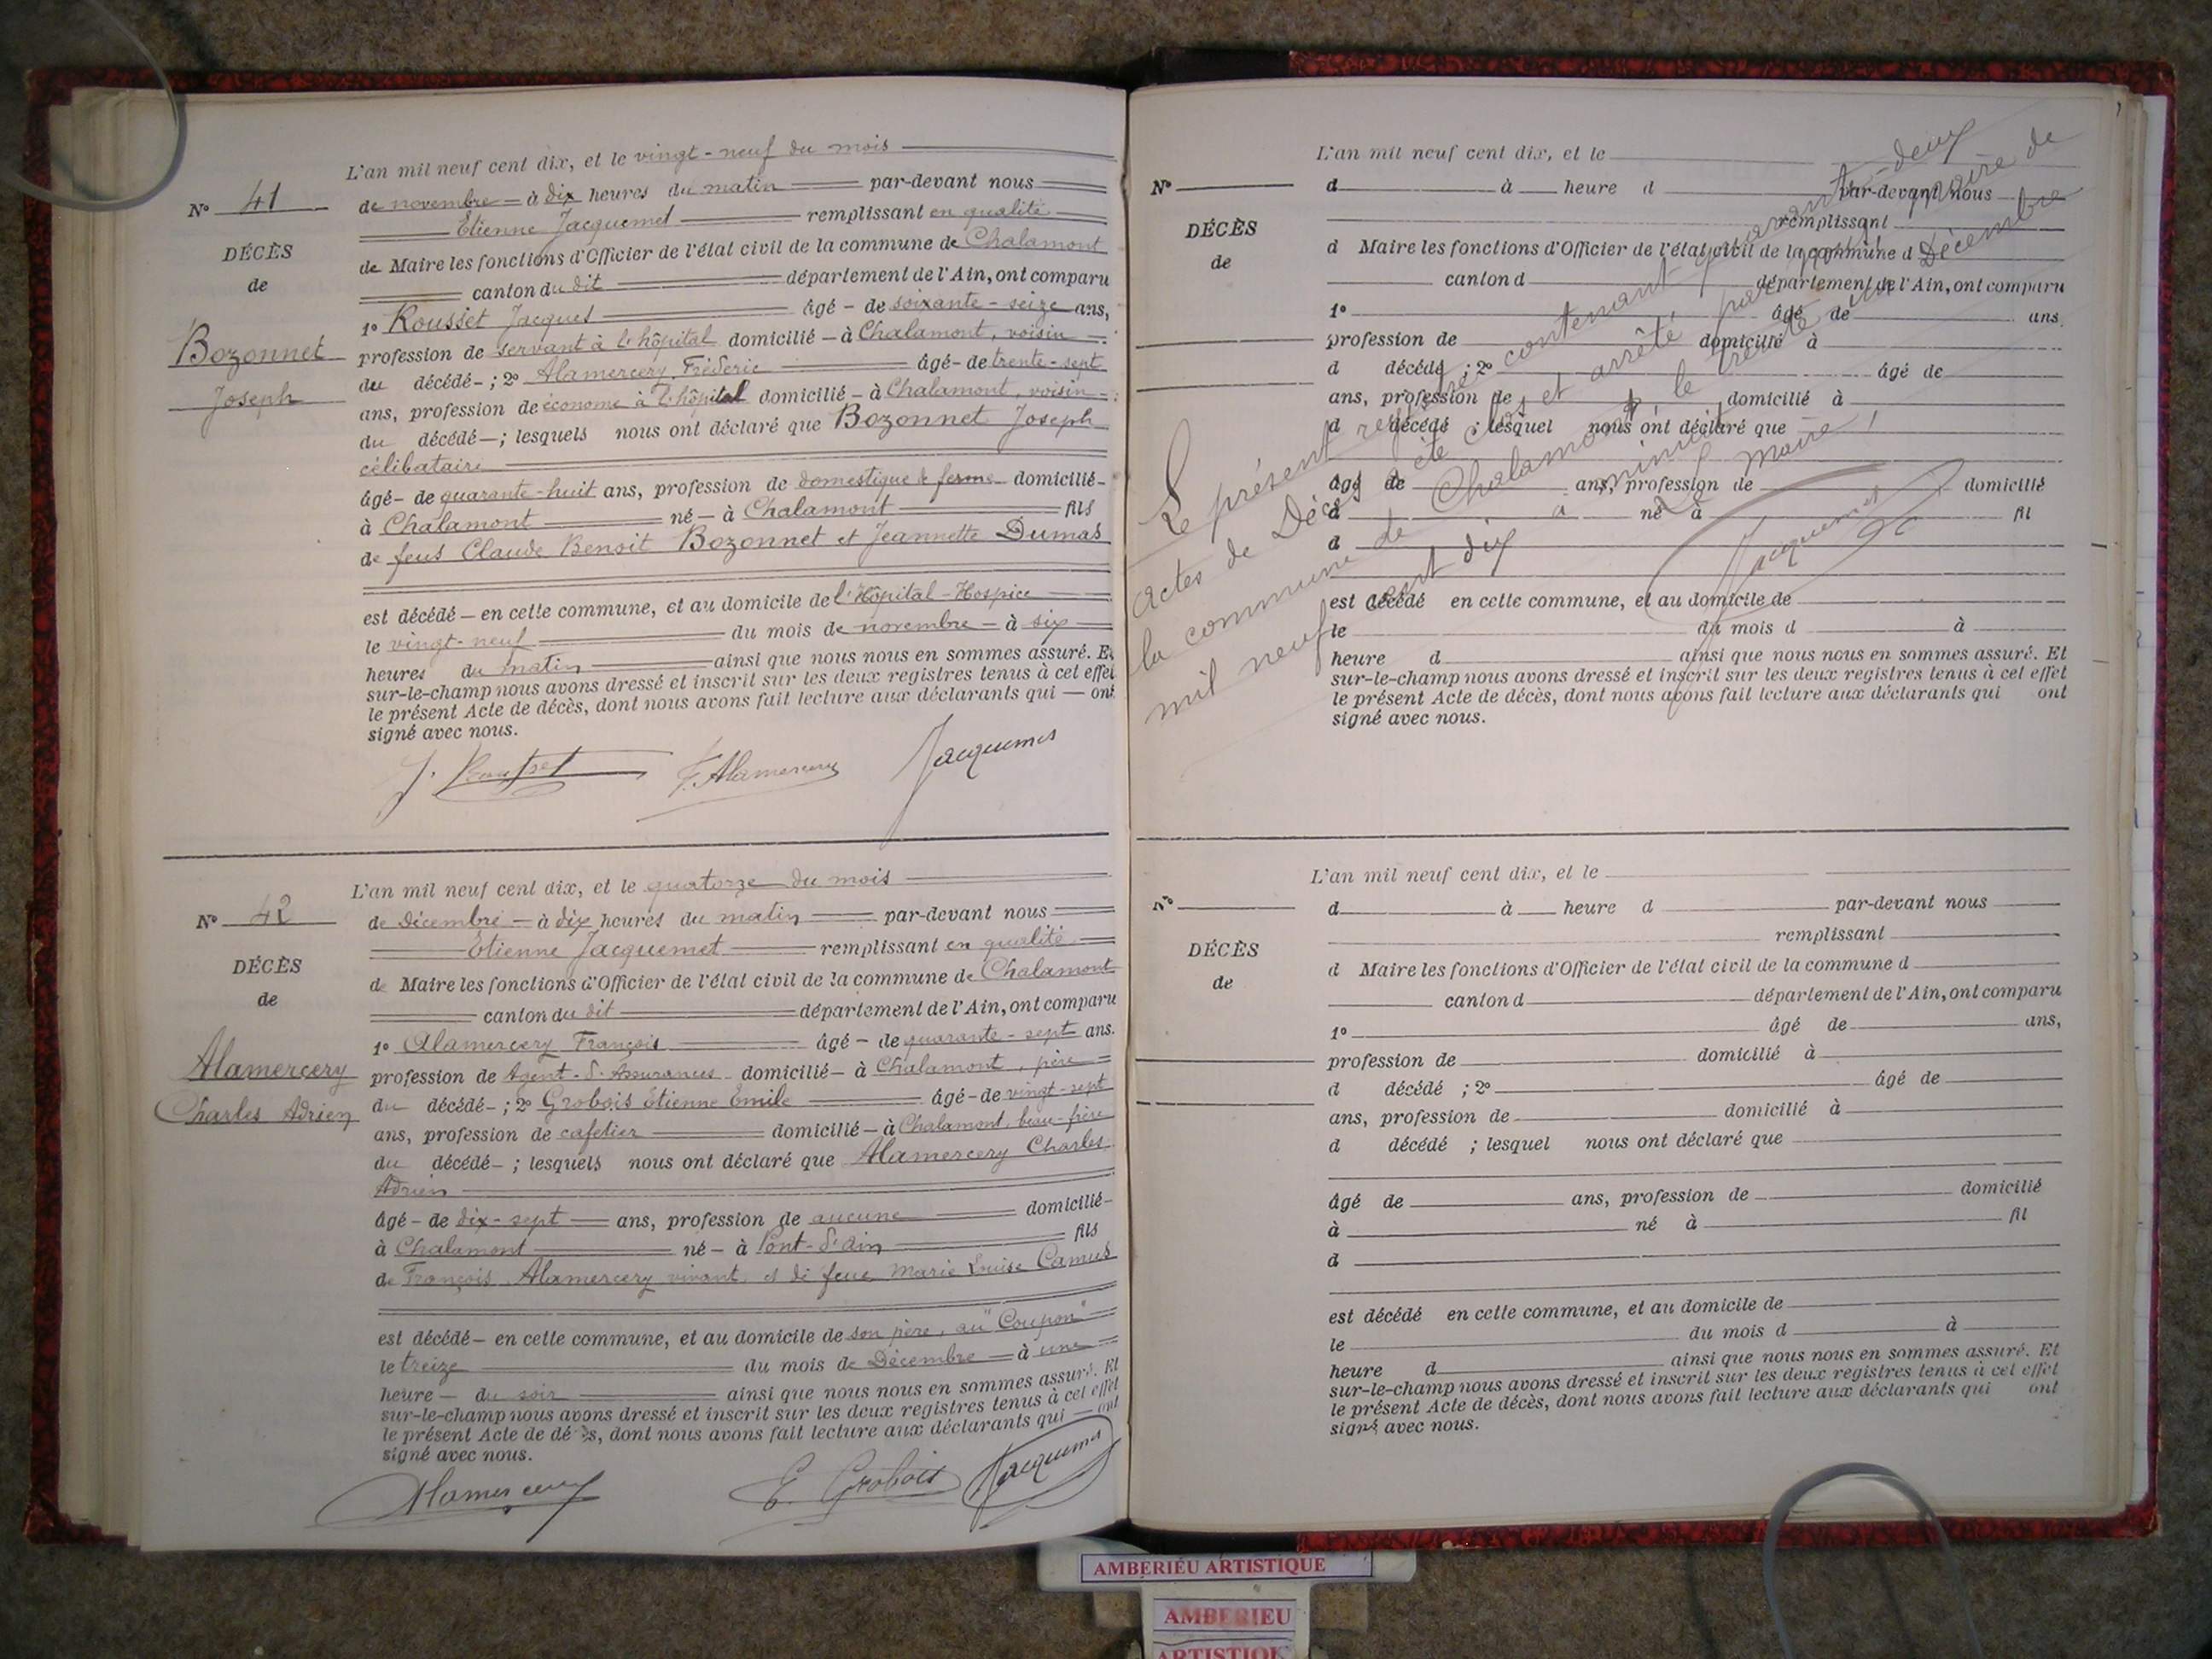 L'an mil neuf cent dix, et le vingt-neuf du mois
N° 41
de novembre à dix heures du matin par-devant nous
Etienne Jacquemet remplissant en qualité
DÉCÈS
de Maire les fonctions d'Officier de l'état civil de la commune de Chalamont
de
canton du dit département de l'Ain, ont comparu
1° Rousset Jacques âgé - de soixante-seize ans,
Bozonnet
profession de servant à l'hôpital domicilié - à Chalamont, voisin
du décédé - ; 2° Alamercery Fréderic âgé - de trente-sept
Joseph
ans, profession de économe à l'hôpital domicilié - à Chalamont, voisin
du décédé - ; lesquels nous ont déclaré que Bozonnet Joseph
célibataire
âgé - de quarante-huit ans, profession de domestique de ferme domicilié -
à Chalamont né - à Chalamont fils
de feus Claude Benoit Bozonnet et Jeannette Dumas
est décédé - en cette commune, et au domicile de l'Hôpital-Hospice
le vingt-neuf du mois de novembre - à six
heures du matin ainsi que nous nous en sommes assuré. Et
sur-le-champ nous avons dressé et inscrit sur les deux registres tenus à cet effet
le présent Acte de décès, dont nous avons fait lecture aux déclarants qui - ont
signé avec nous.
J. Rousset F. Alamercery Jacquemet
L'an mil neuf cent dix, et le quatorze du mois
N° 42
de Décembre - à dix heures du matin par-devant nous
Etienne Jacquemet remplissant en qualité
DÉCÈS
de Maire les fonctions d'Officier de l'état civil de la commune de Chalamont
de
canton du dit département de l'Ain, ont comparu
1° Alamercery François âgé - de quarante-sept ans.
Alamercery
profession de Agent d'Assurances domicilié - à Chalamont, père
Charles Adrien
du décédé - ; 2° Grobois Etienne Emile âgé - de vingt-sept
ans, profession de cafetier domicilié - à Chalamont, beau-frère
du décédé - ; lesquels nous ont déclaré que Alamercery Charles
Adrien
âgé - de dix-sept ans, profession de aucune domicilié -
à Chalamont né - à Pont-d'Ain fils
de François Alamercery vivant, et de feue Marie Louise Camus
est décédé - en cette commune, et au domicile de son père, au "Coupon"
le treize du mois de Décembre - à une
heure - du soir ainsi que nous nous en sommes assuré. Et
sur-le-champ nous avons dressé et inscrit sur les deux registres tenus à cet effet
le présent Acte de décès, dont nous avons fait lecture aux déclarants qui - ont
signé avec nous.
Alamercery E. Grobois Jacquemet
L'an mil neuf cent dix, et le
N°
d à heure d par-devant nous
remplissant
DÉCÈS
d Maire les fonctions d'Officier de l'état civil de la commune d
de
canton d département de l'Ain, ont comparu
1° âgé de ans.
profession de domicilié à
d décédé ; 2° âgé de
ans, profession de domicilié à
d décédé ; lesquel nous ont déclaré que
âgé de ans, profession de domicilié
à né à fil
d
est décédé en cette commune, et au domicile de
le du mois d à
heure d ainsi que nous nous en sommes assuré. Et
sur-le-champ nous avons dressé et inscrit sur les deux registres tenus à cet effet
le présent Acte de décès, dont nous avons fait lecture aux déclarants qui ont
signé avec nous.
Le présent registre contenant quarante-deux
actes de Décès a été clos et arrêté par nous maire de
la commune de Chalamont, le trente un Décembre
mil neuf cent dix à minuit
Le Maire,
Jacquemet
L'an mil neuf cent dix, et le
N°
d à heure d par-devant nous
remplissant
DÉCÈS
d Maire les fonctions d'Officier de l'état civil de la commune d
de
canton d département de l'Ain, ont comparu
1° âgé de ans,
profession de domicilié à
d décédé ; 2° âgé de
ans, profession de domicilié à
d décédé ; lesquel nous ont déclaré que
âgé de ans, profession de domicilié
à né à fil
d
est décédé en cette commune, et au domicile de
le du mois d à
heure d ainsi que nous nous en sommes assuré. Et
sur-le-champ nous avons dressé et inscrit sur les deux registres tenus à cet effet
le présent Acte de décès, dont nous avons fait lecture aux déclarants qui ont
signé avec nous.
AMBERIEU ARTISTIQUE
AMBERIEU
ARTISTIQ